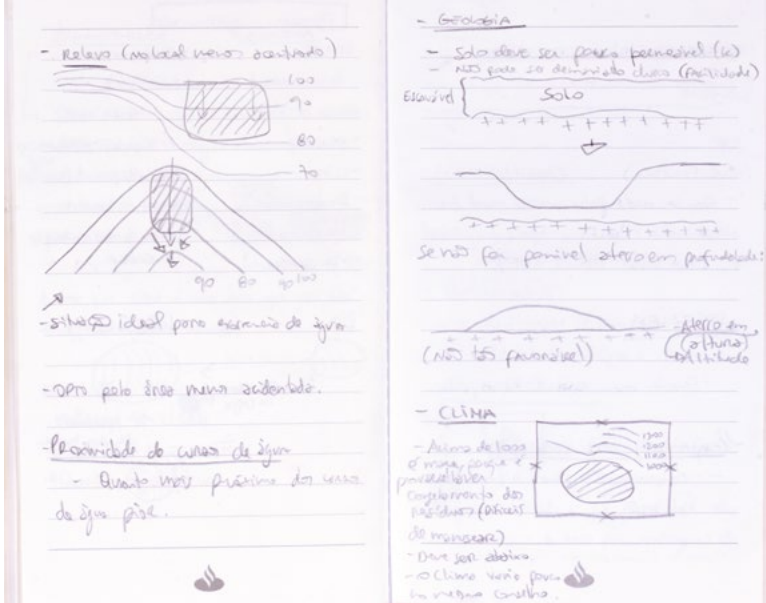 - Relevo (no local menos acentuado)
100
90
80
70
90 80 90 100
- situação ideal para escorrência de água
- Opto pela área menos acidentada.
- Proximidade do curso de água
- Quanto mais próximo dos cursos
de água pior.
- GEOLOGIA
- Solo deve ser pouco permeável (k)
- Não pode ser demasiado duro (facilidade)
Escavável { Solo
se não for possível aterro em profundidade:
(Não tão favorável)
Aterro em
(altura)
Altitude
- CLIMA
1300
1200
1100
1000
- Acima de 1000
é mau, porque é
possível haver
congelamento dos
resíduos (Difíceis
de manusear)
- Deve ser abaixo
- O Clima varia pouco
no mesmo concelho.